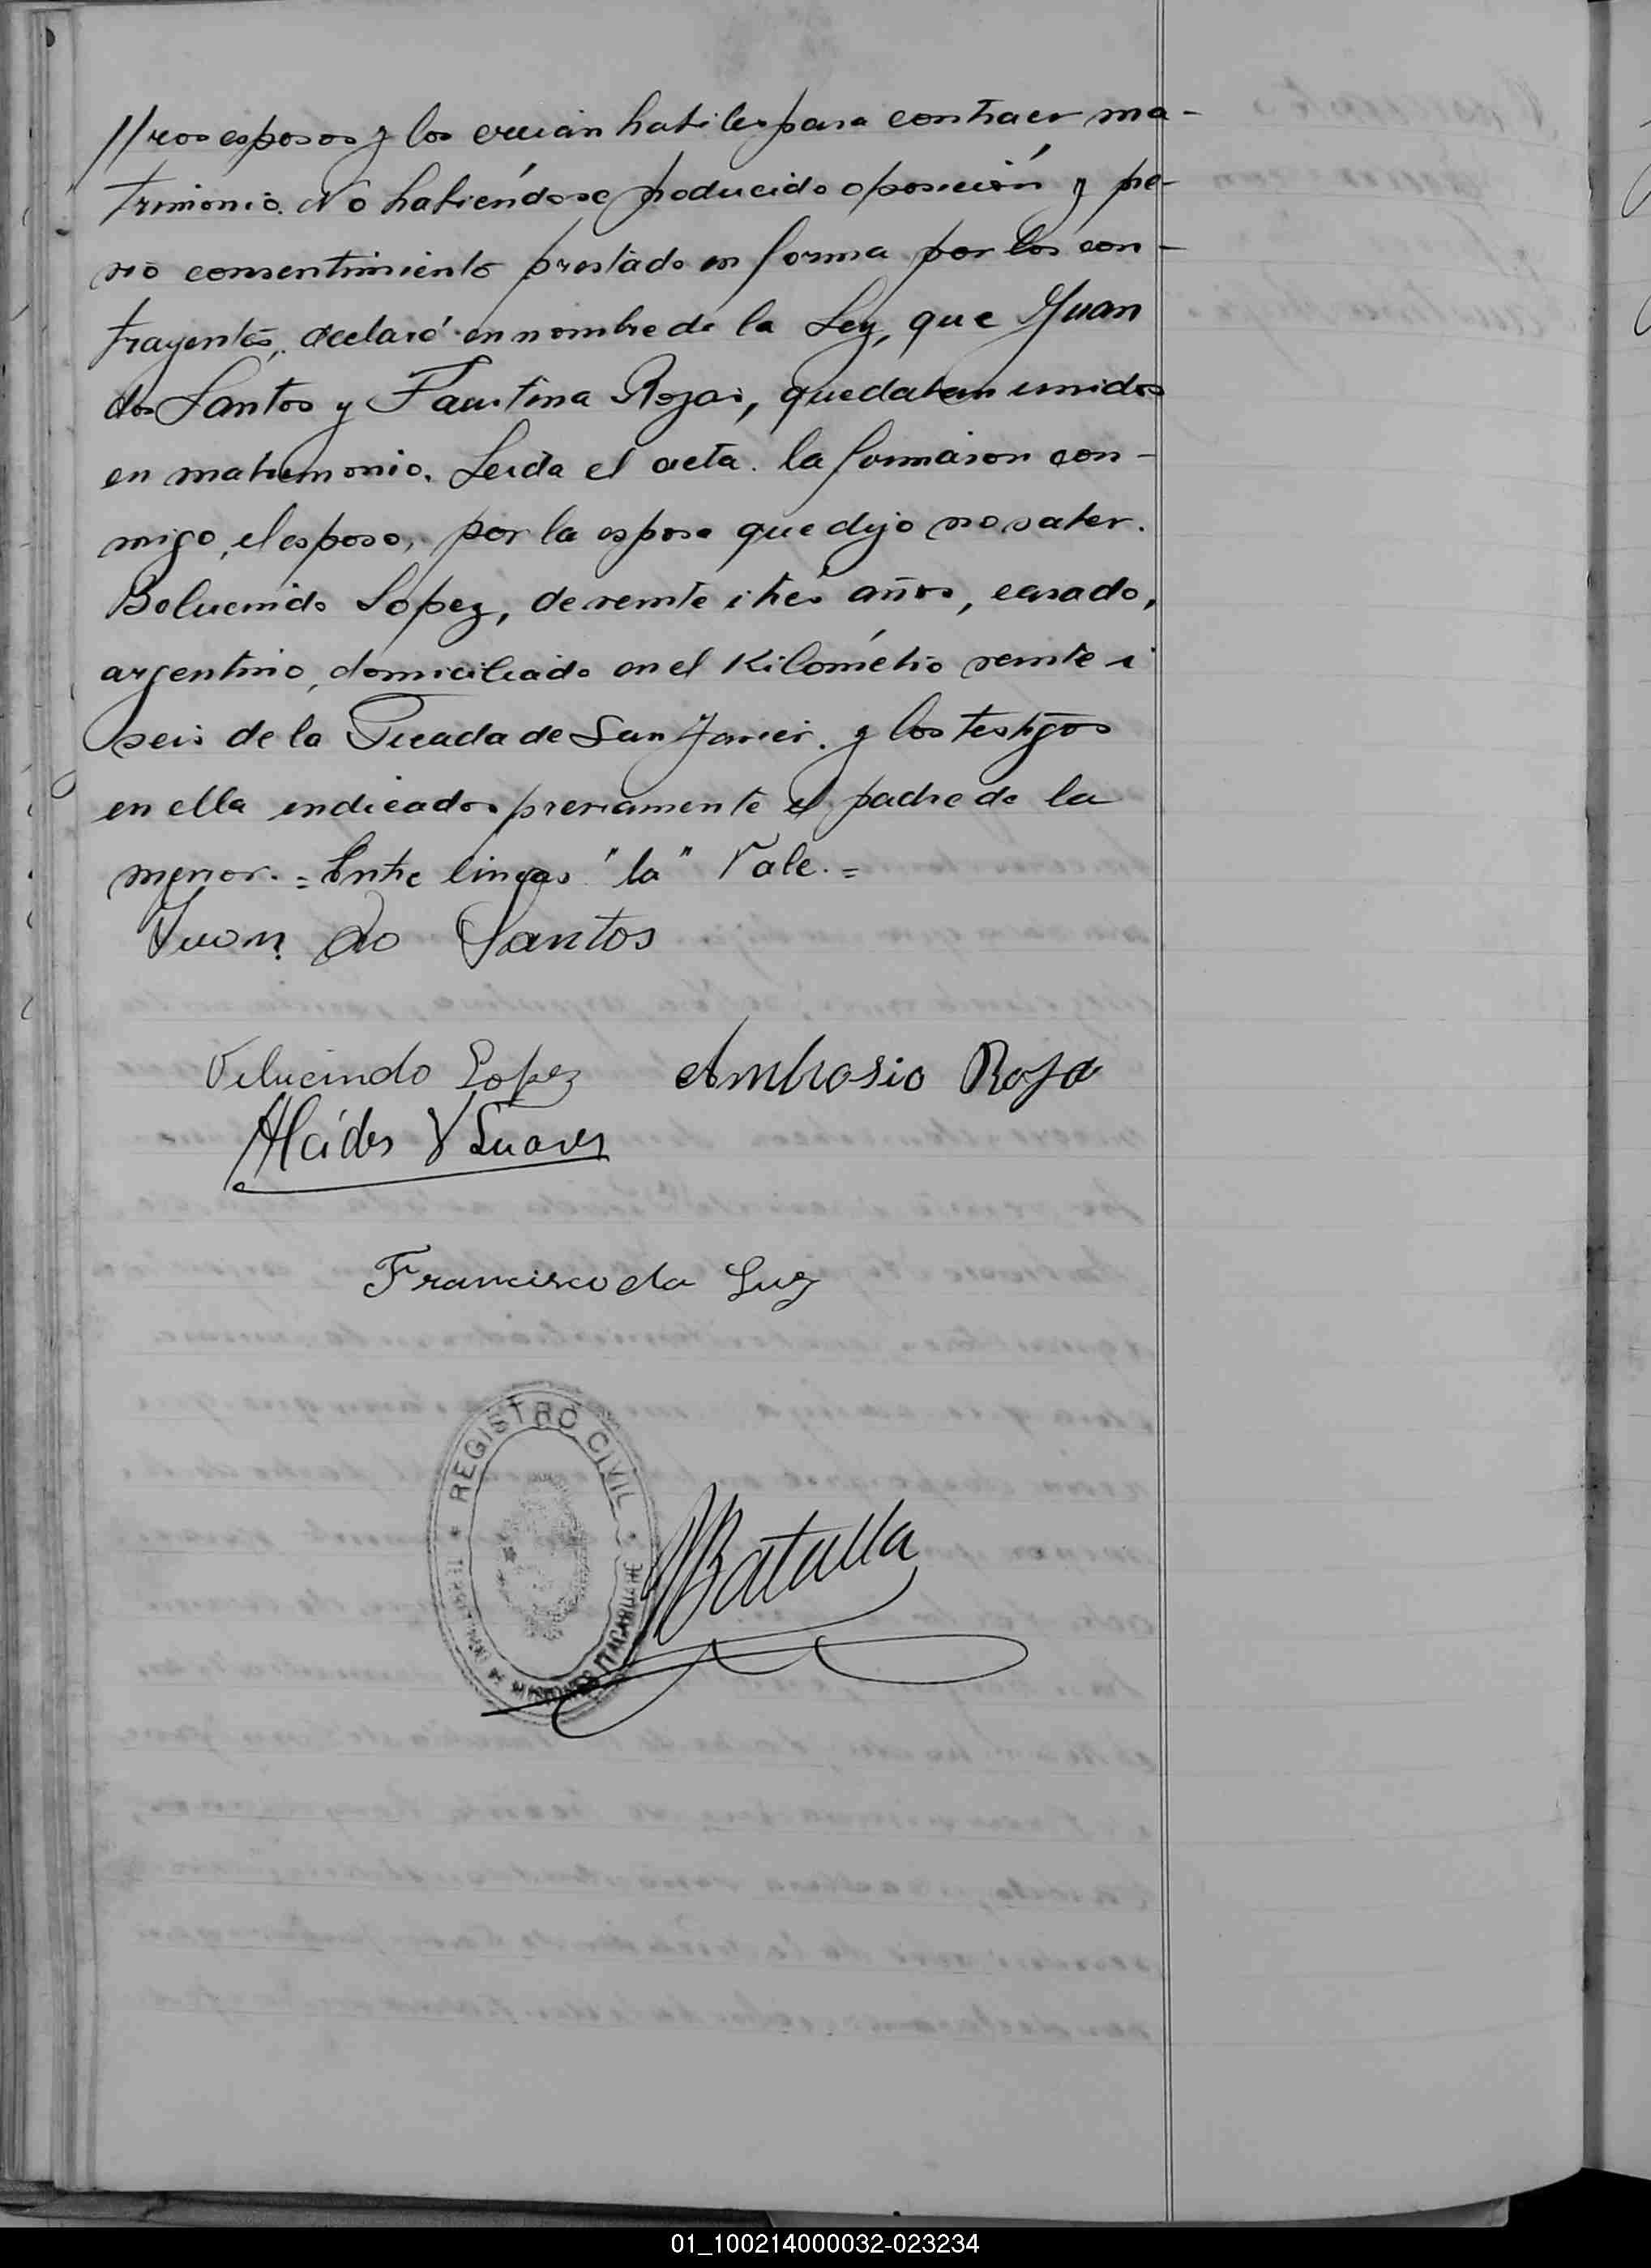 //ros esposos y los creían habiles para contraer ma-
trimonio. No habiéndose producido oposición y pre-
vio consentimiento prestado en forma por los con-
trayentes, declaró en nombre de la Ley, que Juan
dos Santos y Faustina Rojas, quedaban unidos
en matrimonio. Leida el acta. la firmaron con-
migo, el esposo, por la esposa que dijo no saber.
Belucindo Lopez, de veinte i tres años, casado,
argentino, domiciliado en el Kilométro veinte i
seis de la Picada de San Javier. y los testigos
en ella indicados previamente el padre de la
menor. = Entre lineas "la" Vale. =
Juan do Santos
Velucindo Lopez Ambrosio Roja
Alcides V Suares
Francisco da Luz
REGISTRO CIVIL
TERRITORIO DE MISIONES ITACARUARE
Batalla
01_100214000032-023234